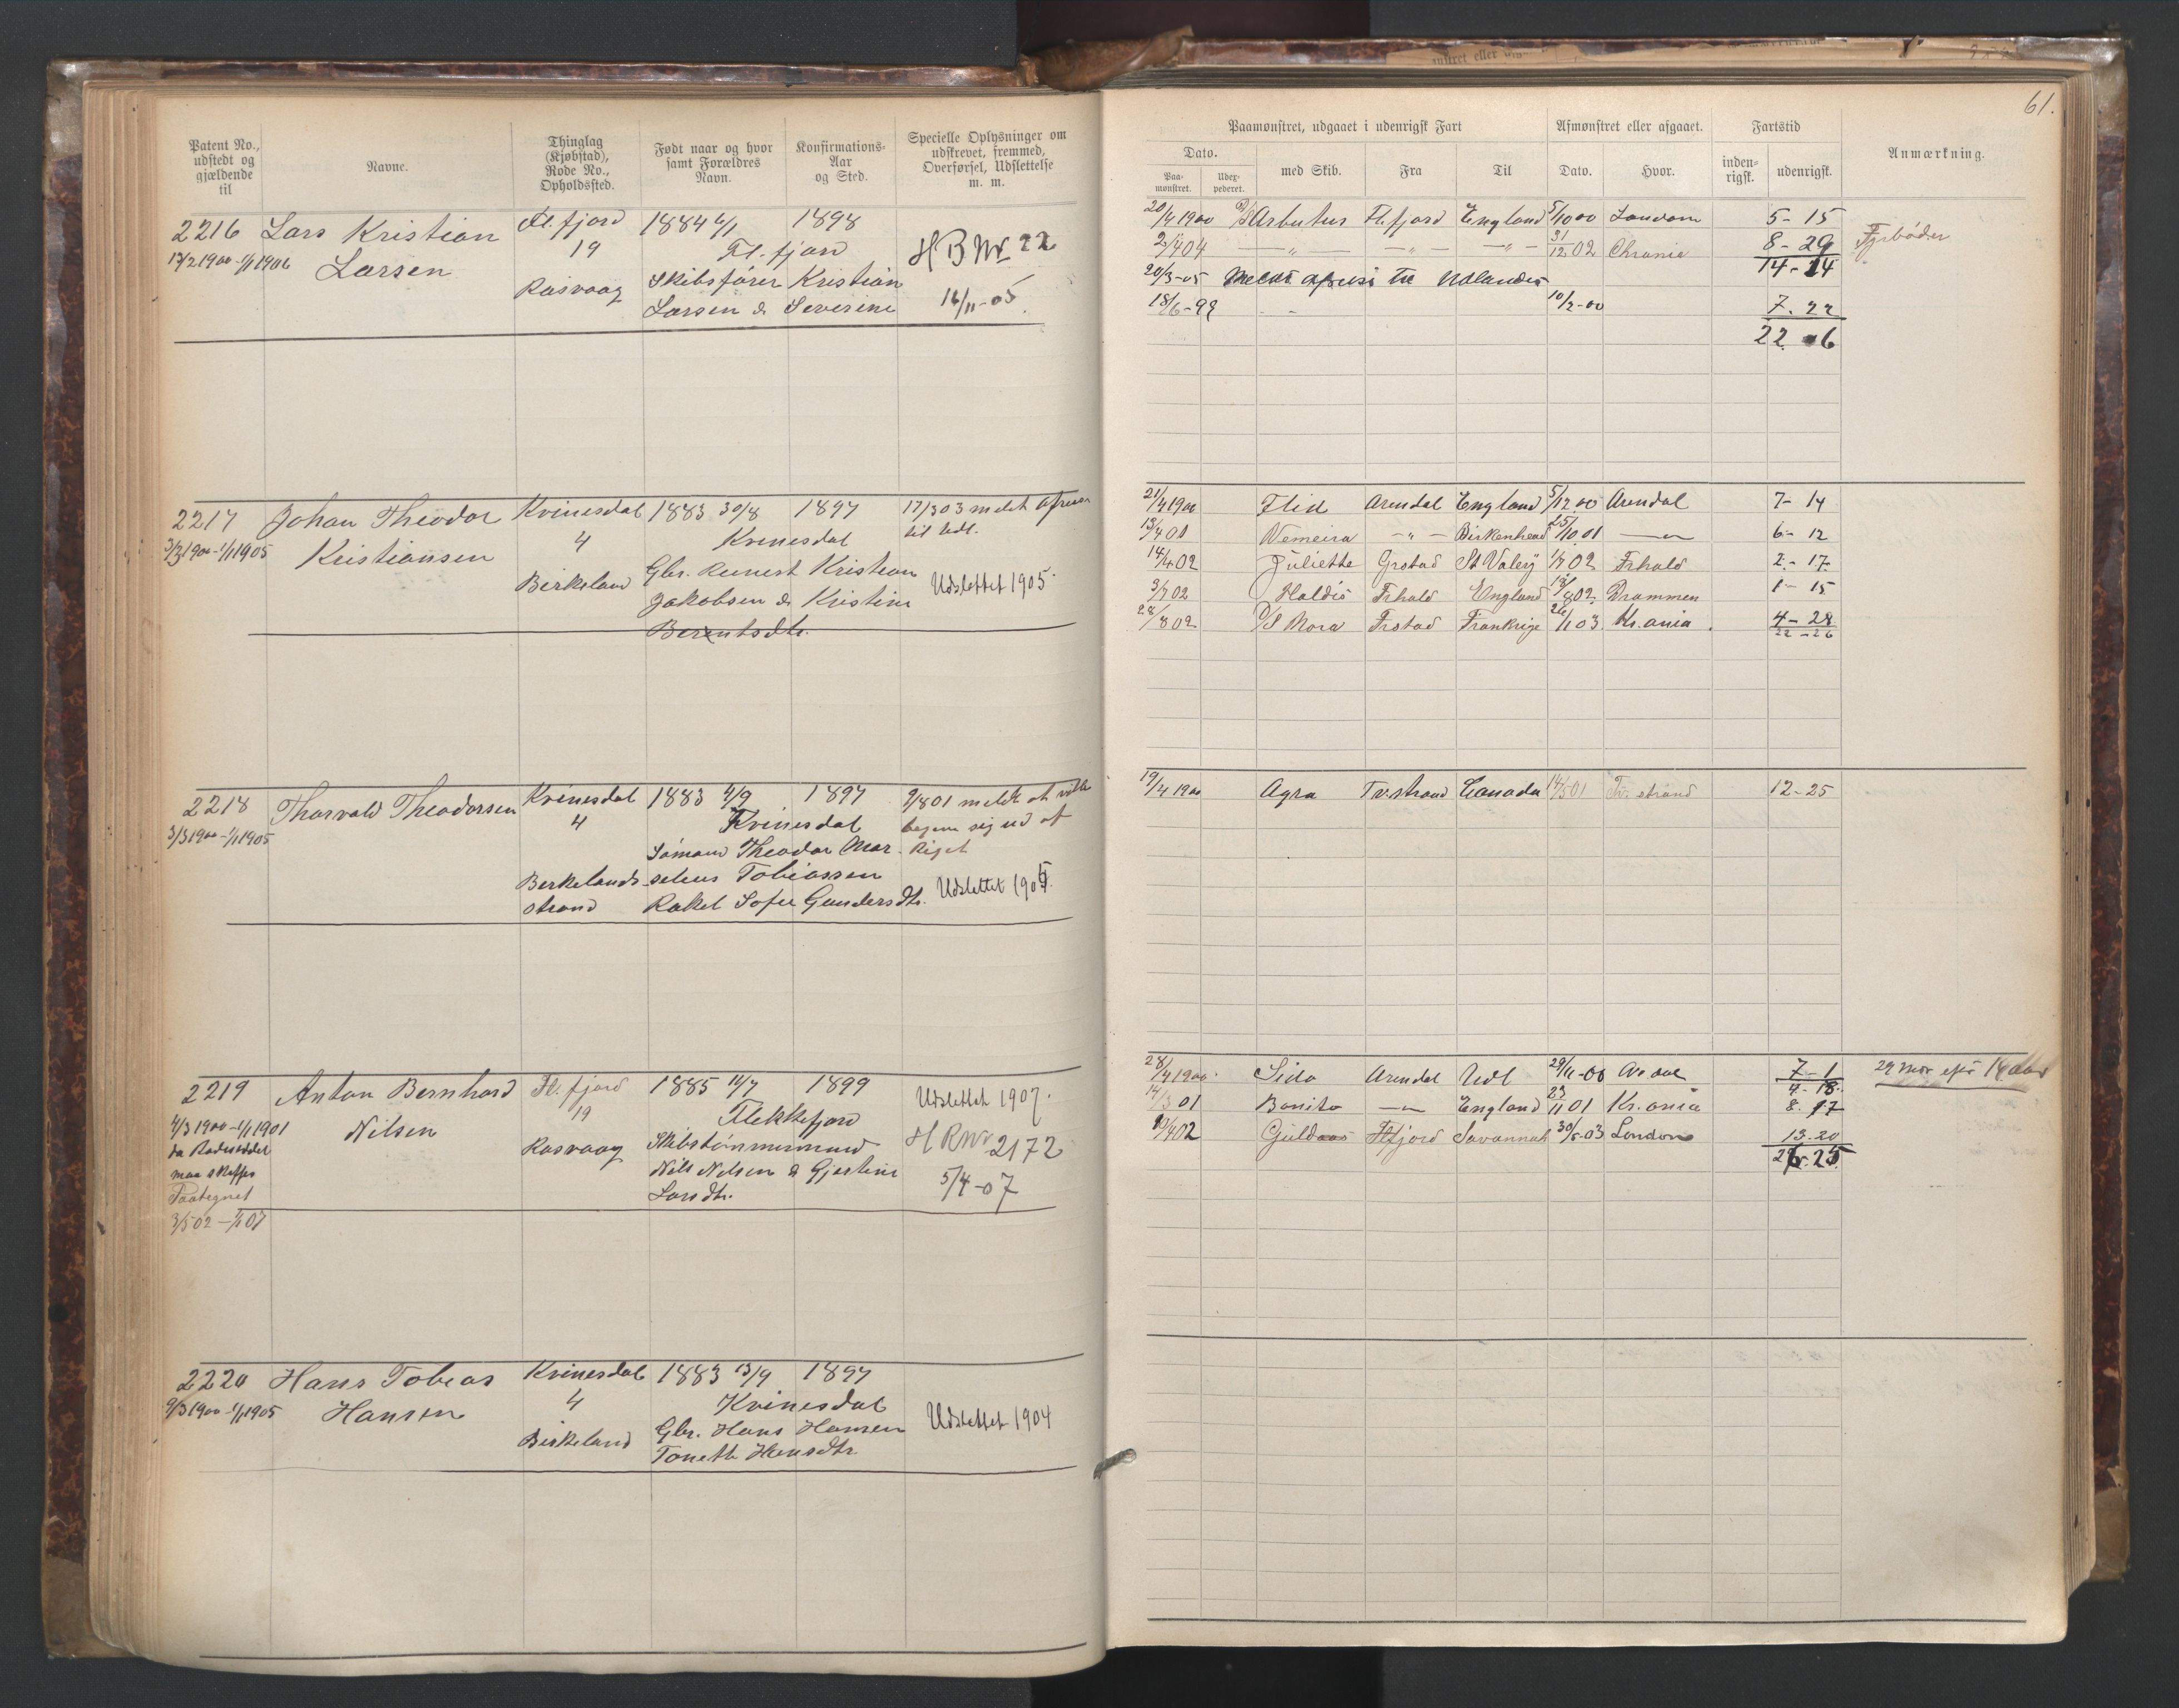 61.
Patent No., udstedt og gjældende til
Navne.
Thinglag (Kjøbstad), Rode No., Opholdssted.
Født naar og hvor samt Forældres Navn.
Konfirmations-Aar og Sted.
Specielle Oplysninger om udskrevet, fremmed, Overførsel, Udslettelse m. m.
Paamønstret, udgaaet i udenrigsk Fart
Afmønstret eller afgaaet.
Fartstid
Anmærkning.
Dato.
Paa-mønstret.
Udex-pederet.
med Skib.
Fra
Til
Dato.
Hvor.
inden-rigsk.
udenrigsk.
2216 Lars Kristian Fl.fjord 1884 6/1 1898
13/2 1900 - 1/1 1906 Larsen 19 Fl.fjord H B Nr 22
Rasvaag Skibsfører Kristian
Larsen & Severine 16/11-05
20/4 1900 D/S Arbutus Fl.fjord England 5/10 00 London 5-15 Fyrbøder
2/4 04 — " — — " — — " — 31/12 02 Chrania 8-29
14-14
20/3-05 Meldt afreist til Udlandet
18/6-99 10/2-00 7.22
22 6
2217 Johan Theodor Kvinesdal 1883 30/8 1897 17/3 03 meldt afreist
3/3 1900 - 1/1 1905 Kristiansen 4 Kvinesdal til Udl.
Birkeland Gbr. Reinert Kristian Udslettet 1905.
Jakobsen & Kristine
Berentsdtr.
21/4 1900 Flid Arendal England 5/12 00 Arendal 7-14
13/4 01 Nemeira — " — Birkenhead 25/10 01 — " — 6-12
14/4 02 Juliette Grstad St Valery 1/7 02 Frhald 2-17
3/7 02 Haldis Frhald England 18/8 02 Drammen 1-15
28/8 02 D/S Nora Frstad Frankrige 26/1 03 Kr.ania 4-28
22-26
2218 Thorvald Theodorsen Kvinesdal 1883 4/9 1897 9/8 01 meldt at ville
3/3 1900 - 1/1 1905 4 Kvinesdal begive sig ud af
Sømand Theodor Mar- Riget
Berkelands- selius Tobiassen
strand Rakel Sofie Gundersdtr. Udslettet 1905.
19/4 1900 Agra Tv.strand Canada 14/5 01 Tv.strand 12-25
2219 Anton Bernhard Fl.fjord 1885 11/7 1899 Udslettet 1907.
4/3 1900 - 1/1 1901 Nilsen 19 Flekkefjord
da Radiseddel Rasvaag Skibstømmermand H R Nr 2172
maa skaffes Nils Nilsen & Gjertine
Paategnet Larsdtr. 5/4-07
3/5 02 - 1/1 07
28/4 1900 Sido Arendal Udl 29/11-00 Ardal 7-1 29 Mdr efter 14 Aar
14/3 01 Bonito — " — England 23/11 01 Kr.ania 4-18
8.17
10/4 02 Guldaas Flfjord Savannah 30/5-03 London 13.20
26.25
2220 Hans Tobias Kvinesdal 1883 13/9 1897
9/3 1900 - 1/1 1905 Hansen 4 Kvinesdal
Birkeland Gbr. Hans Hansen Udslettet 1904
Tonette Hansdtr.